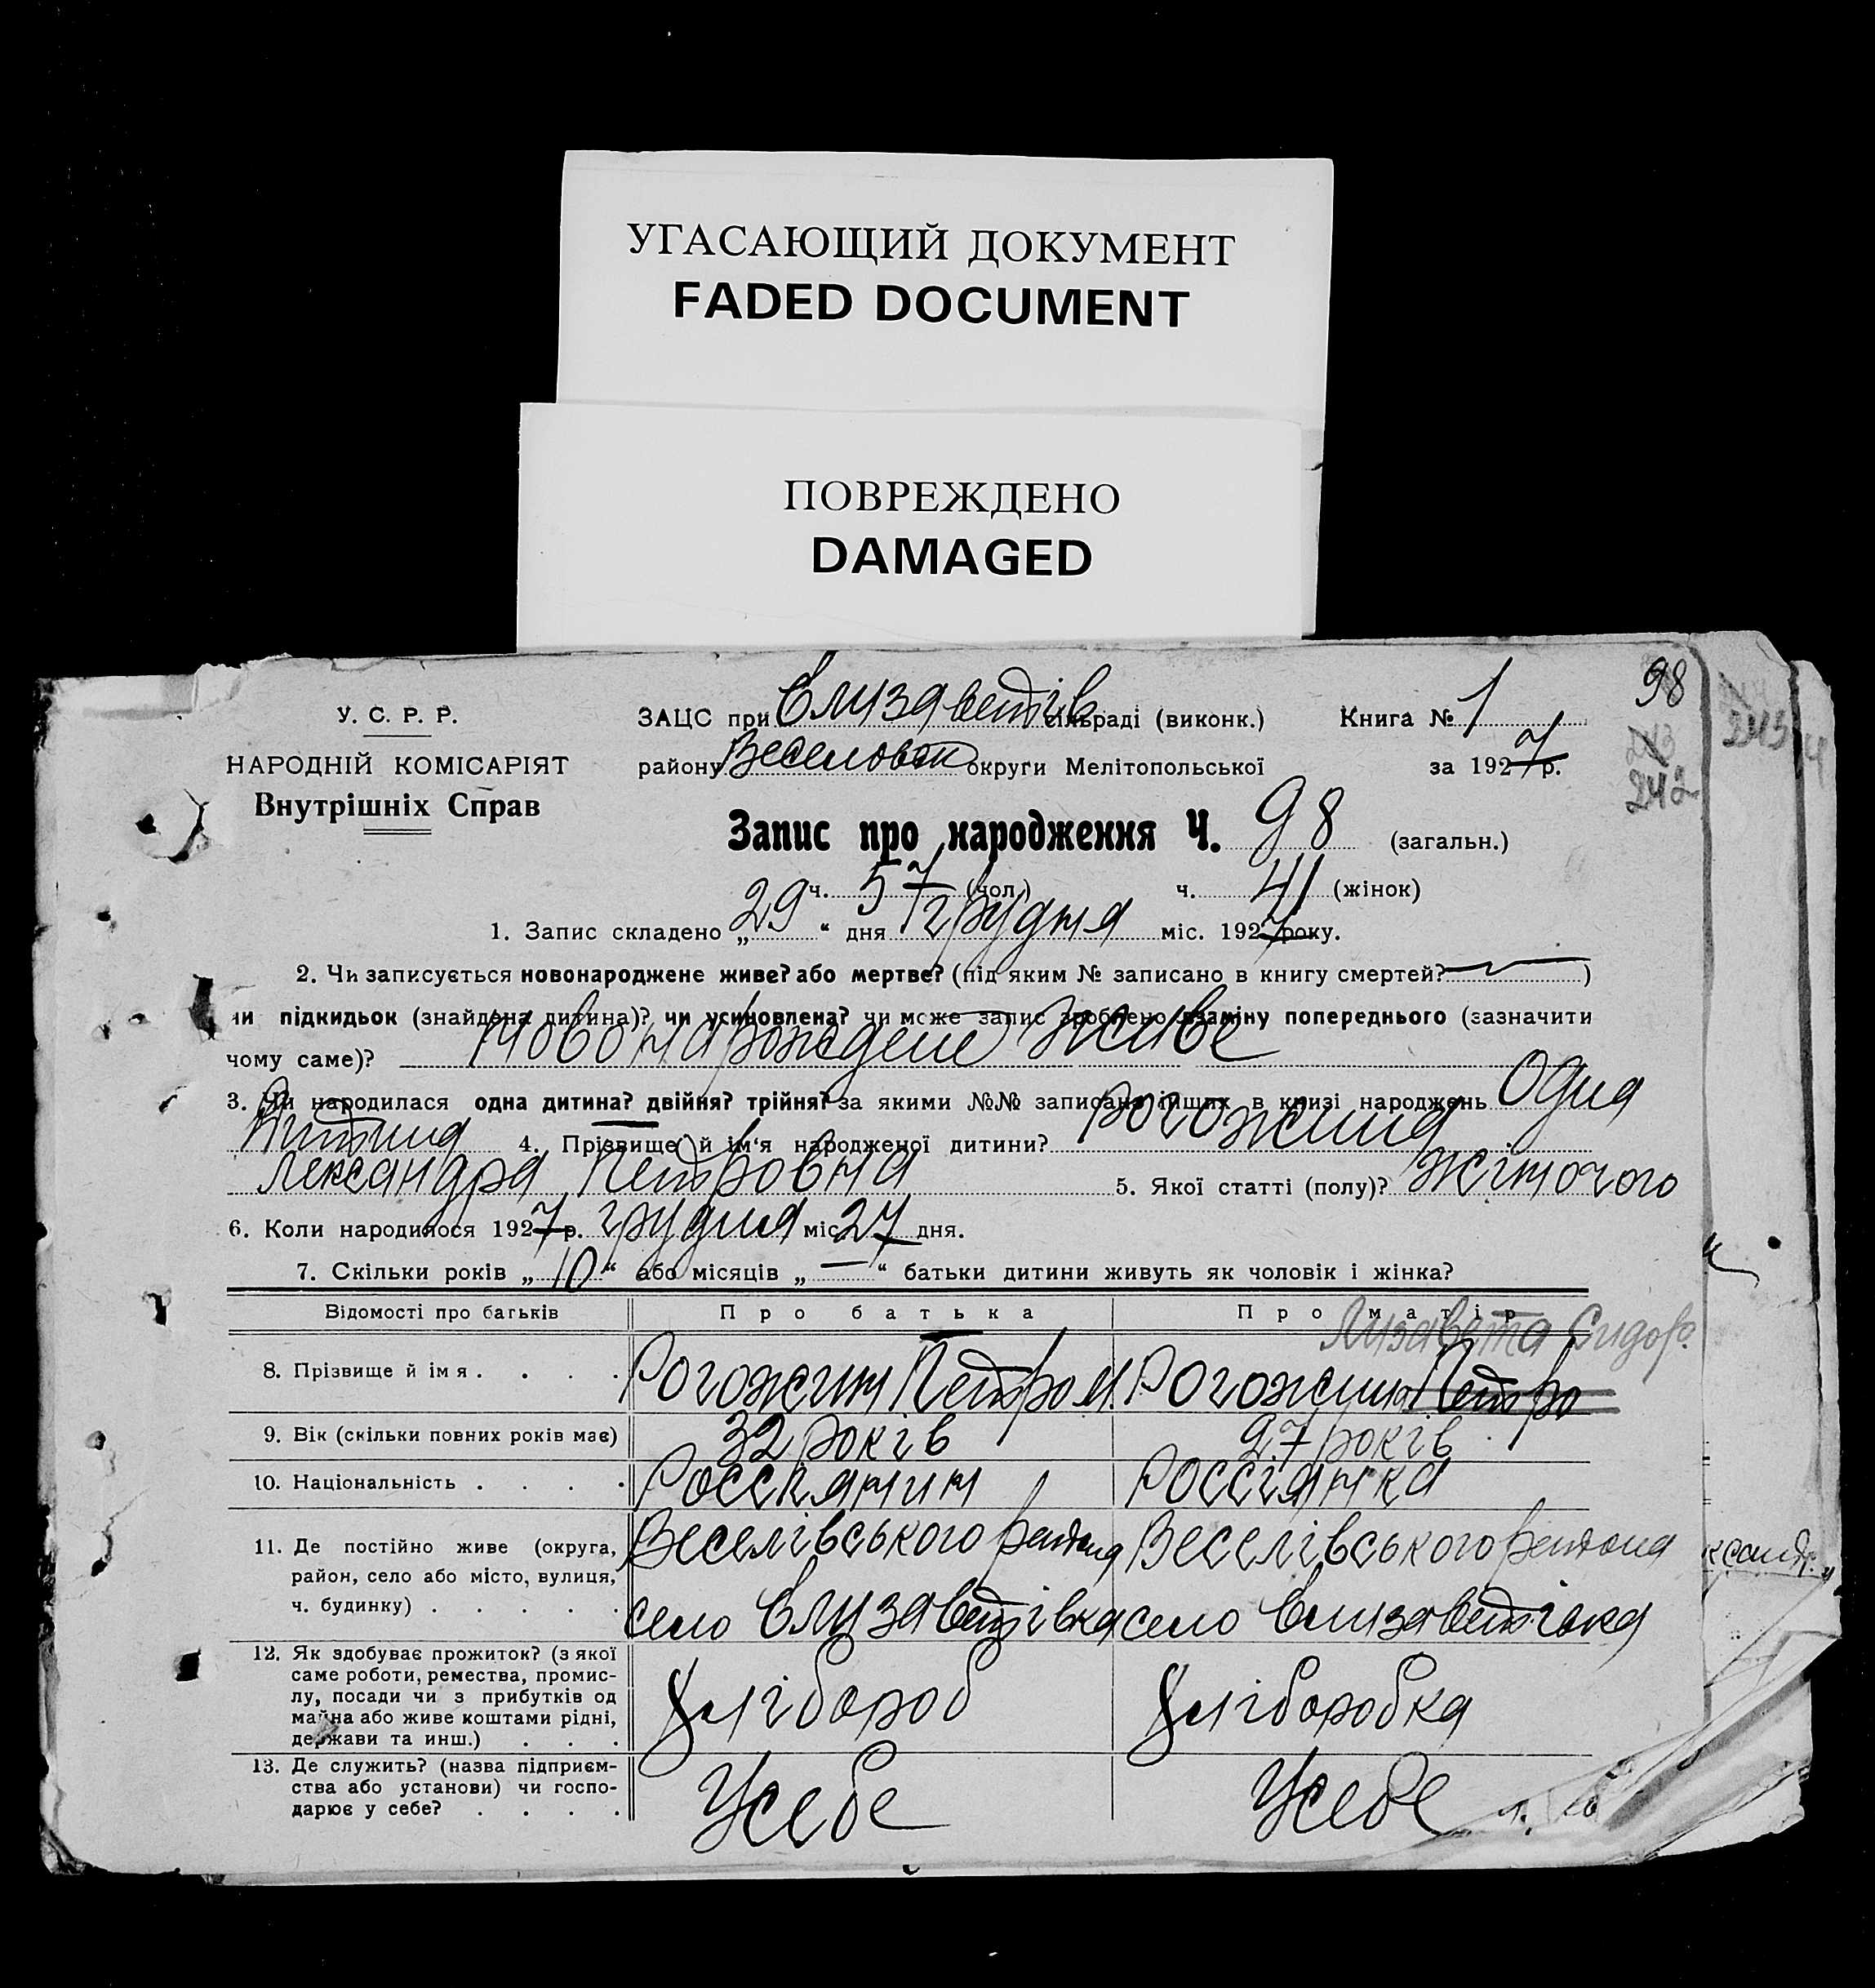 УГАСАЮЩИЙ ДОКУМЕНТ
FADED DOCUMENT
ПОВРЕЖДЕНО
DAMAGED
98
У. С. Р. Р.
ЗАЦС при Єлизаветів сільраді (виконк.) Книга № 1
243
242
НАРОДНІЙ КОМІСАРІЯТ
району Веселовск округи Мелітопольської за 1927 р.
Внутрішніх Справ
Запис про народження Ч. 98 (загальн.)
ч. 57 (чол.) ч. 41 (жінок)
1. Запис складено „29“ дня грудня міс. 1927 року.
2. Чи записується новонароджене живе? або мертве? (під яким № записано в книгу смертей? — )
чи підкидьок (знайдена дитина)? чи усиновлена? чи може запис зроблено взаміну попереднього (зазначити
чому саме)? Новонарождене живе
3. Чи народилася одна дитина? двійня? трійня? за якими №№ записано інших в книзі народжень Одна
дитина 4. Прізвище й ім'я народженої дитини? Рогожина
лександра Петровна 5. Якої статті (полу)? жіночого
6. Коли народилося 1927 р. грудня міс 27 дня.
7. Скільки років „10“ або місяців „—“ батьки дитини живуть як чоловік і жінка?
Відомості про батьків Про батька Про матір
Лизавета Сидор.
8. Прізвище й імя . . . . Рогожин Петро М. Рогожина Петро
9. Вік (скільки повних років має) 32 років 27 років
10. Національність . . . . Россиянин Россіянка
11. Де постійно живе (округа, район, село або місто, вулиця, ч. будинку) . . . . . Веселівського района Веселівського района
село Єлизаветівка село Єлизаветівка
12. Як здобуває прожиток? (з якої саме роботи, ремества, промислу, посади чи з прибутків од майна або живе коштами рідні, держави та инш.) . . . Хліборов Хліборобка
13. Де служить? (назва підприємства або установи) чи господарює у себе? . . . . Усебе Усебе